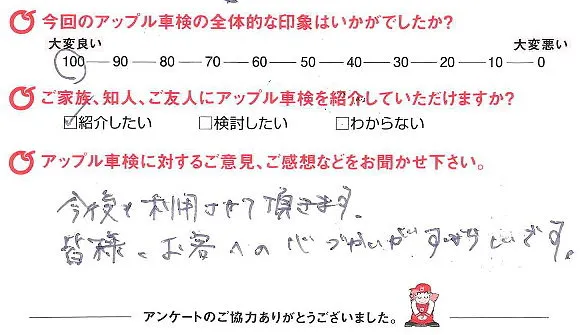 今回のアップル車検の全体的な印象はいかがでしたか?
大変良い 大変悪い
100 90 80 70 60 50 40 30 20 10 0
ご家族、知人、ご友人にアップル車検を紹介していただけますか?
☑紹介したい □検討したい □わからない
アップル車検に対するご意見、ご感想などをお聞かせ下さい。
今後も利用させて頂きます。
皆様、お客への心づかいがすばらしいです。
アンケートのご協力ありがとうございました。